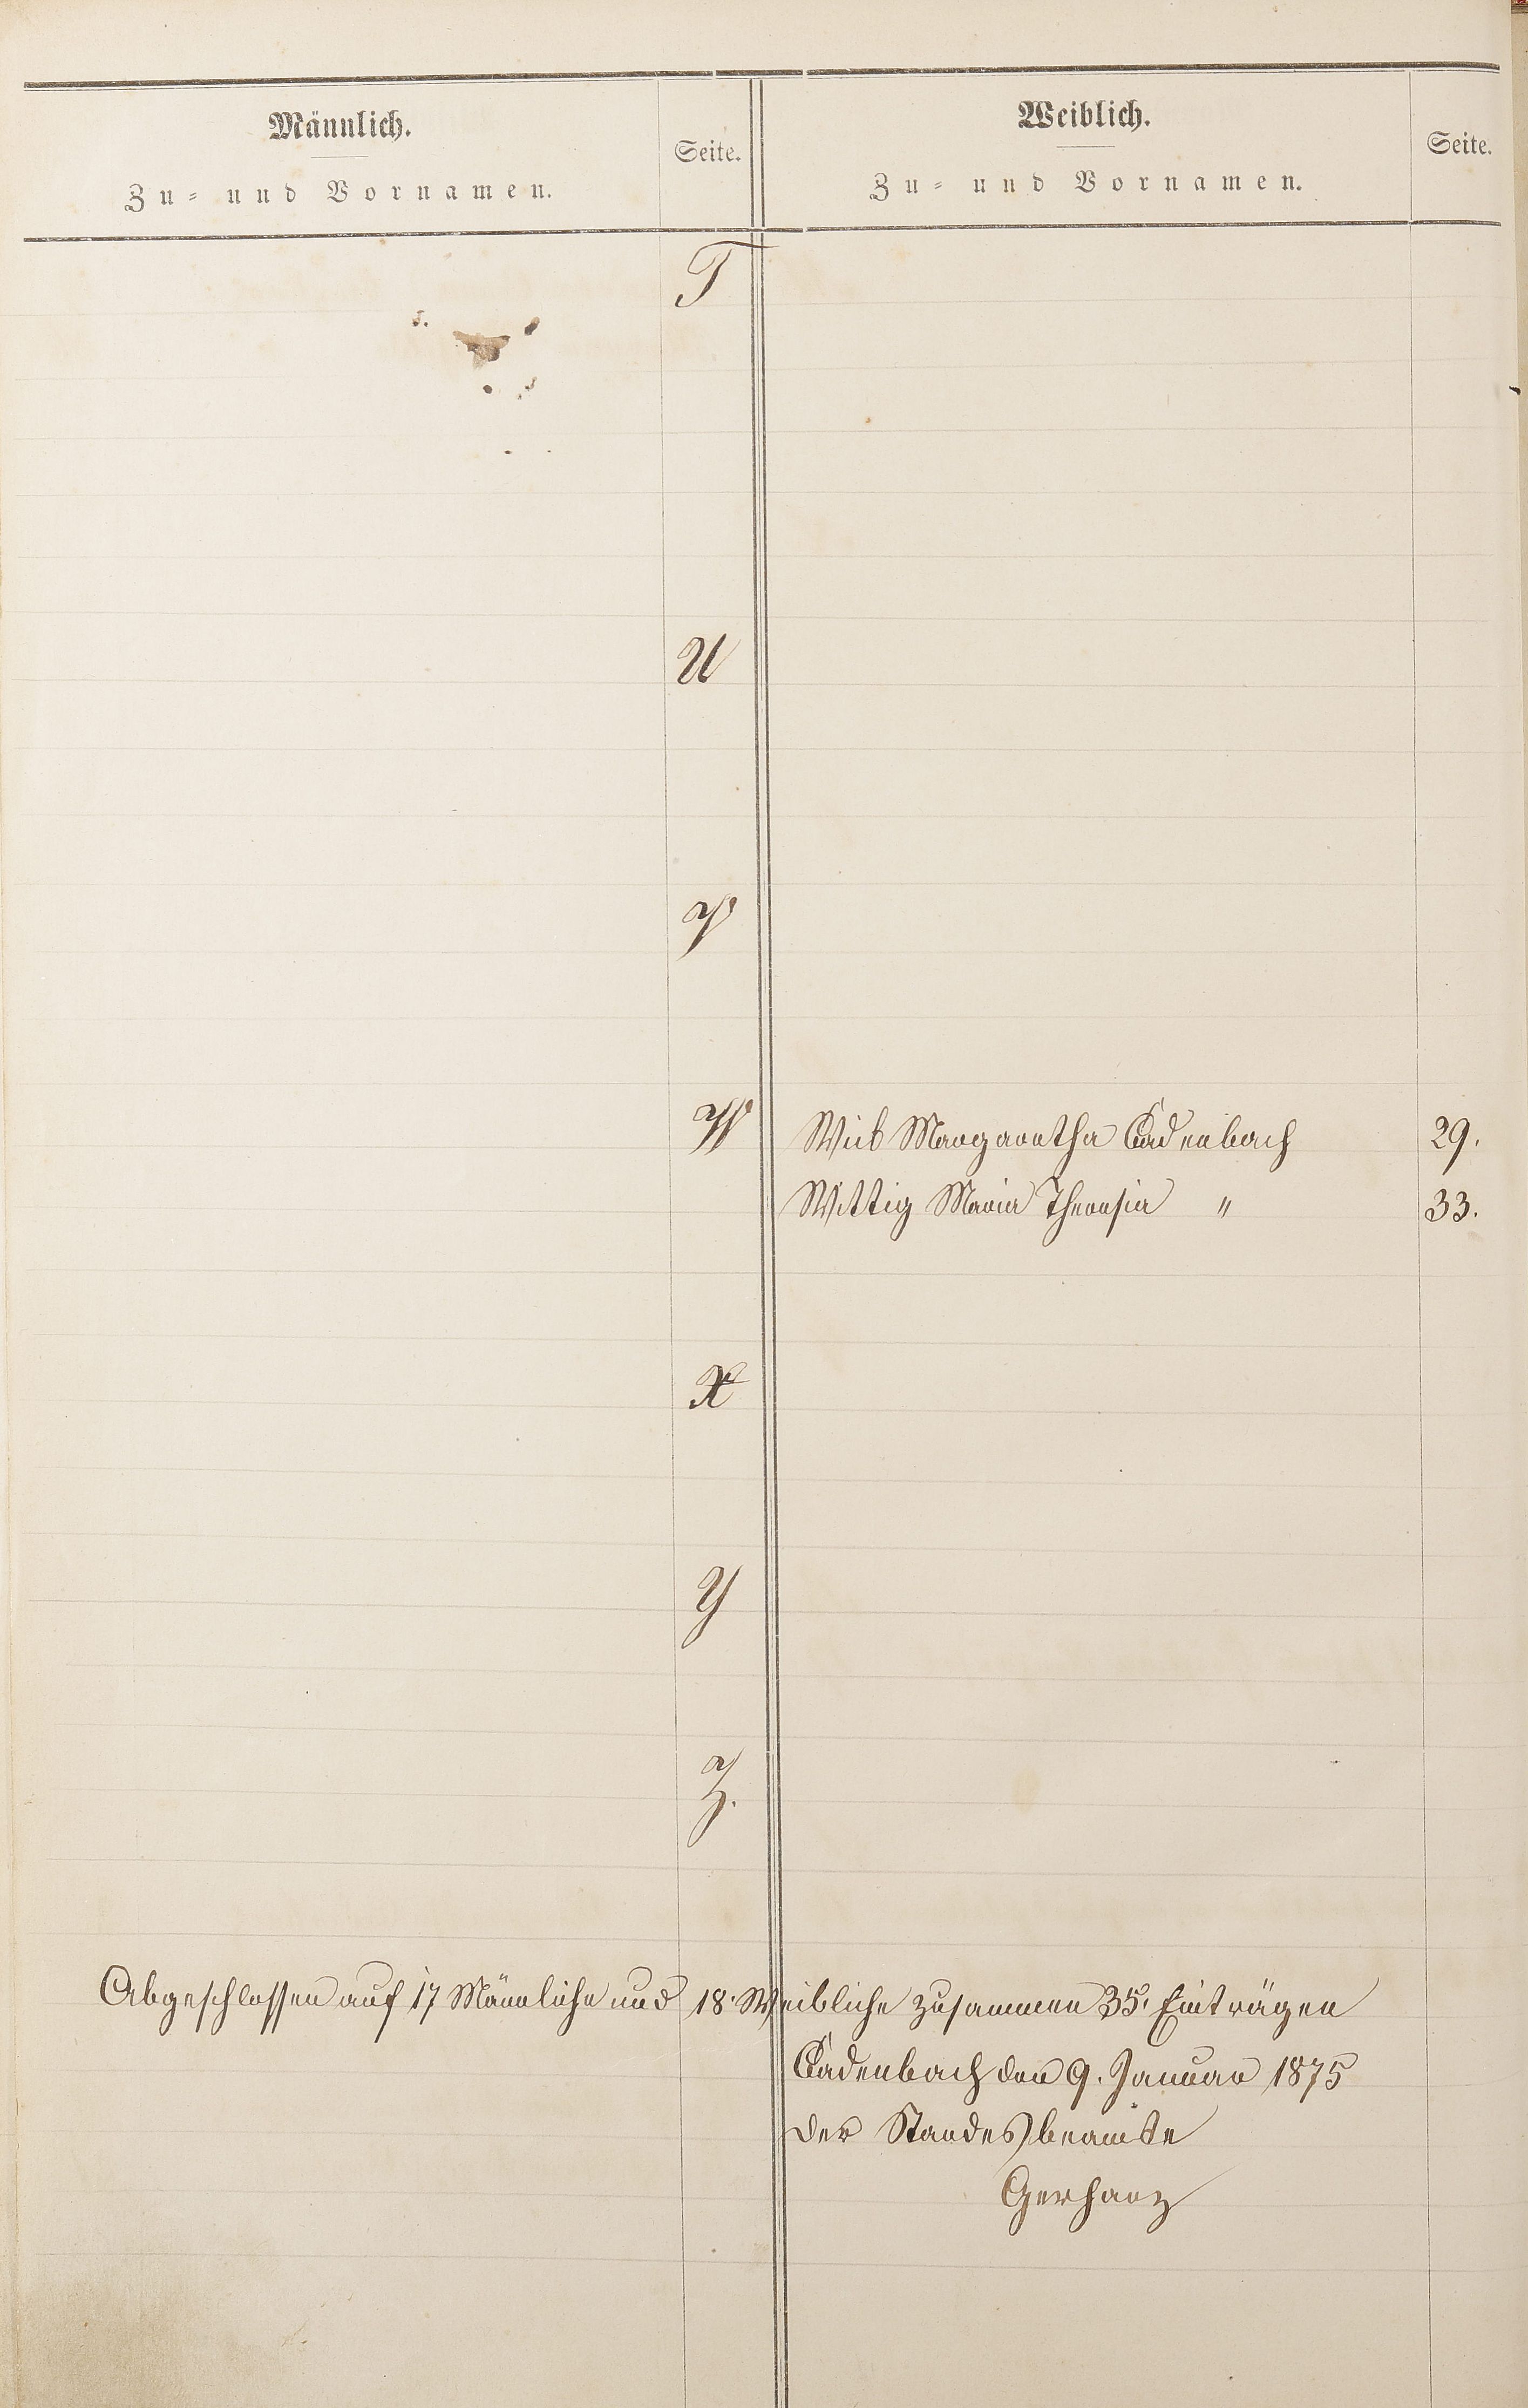 Männlich.
Zu- und Vornamen.
Seite.
Weiblich.
Zu- und Vornamen.
Seite.
T
U
V
W
Wieb Margaretha Cadenbach 29.
Wittig Maria Theresia " 33.
X
Y
Z.
Abgeschlossen auf 17 Männliche und 18. Weibliche zusammen 35. Einträgen
Cadenbach den 9. Januar 1875
der Standesbeamte
Gerharz